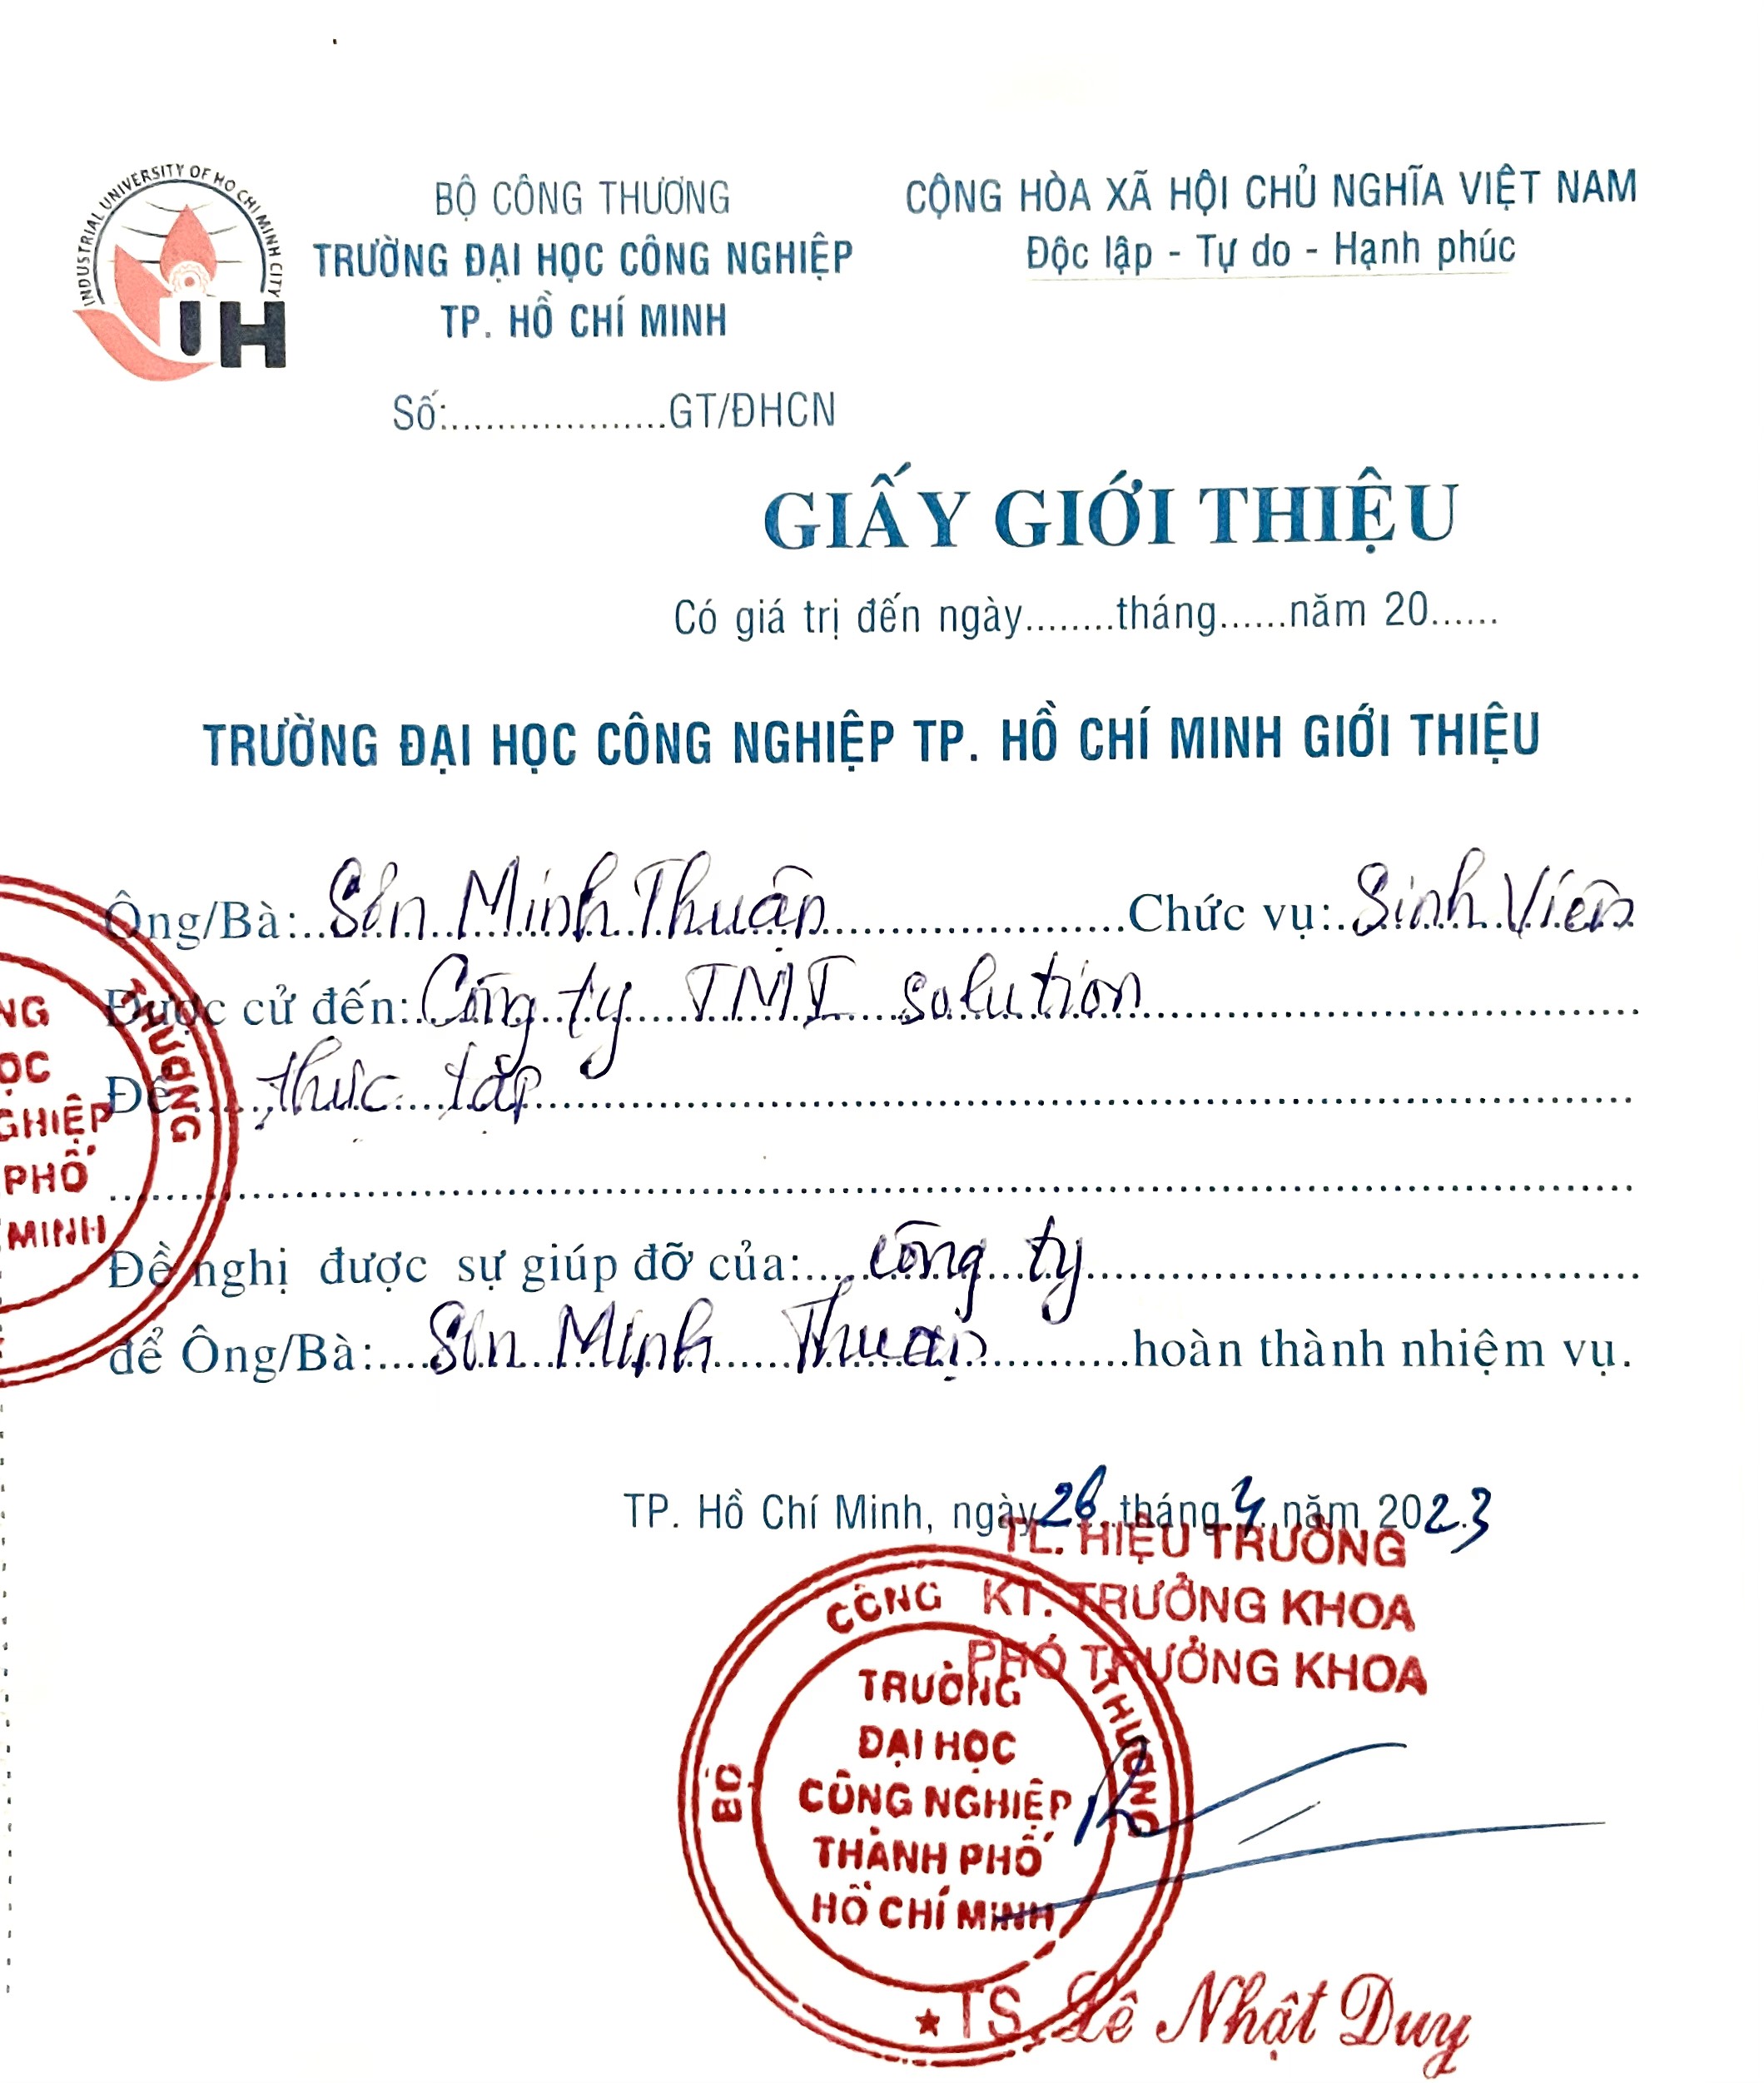 INDUSTRIAL UNIVERSITY OF HO CHI MINH CITY
IUH
BỘ CÔNG THƯƠNG
TRƯỜNG ĐẠI HỌC CÔNG NGHIỆP
TP. HỒ CHÍ MINH
CỘNG HÒA XÃ HỘI CHỦ NGHĨA VIỆT NAM
Độc lập - Tự do - Hạnh phúc
Số:....................GT/ĐHCN
GIẤY GIỚI THIỆU
Có giá trị đến ngày........tháng......năm 20......
TRƯỜNG ĐẠI HỌC CÔNG NGHIỆP TP. HỒ CHÍ MINH GIỚI THIỆU
Ông/Bà: Sơn Minh Thuận Chức vụ: Sinh Viên
Được cử đến: Công ty TMI solution
Để thực tập
Đề nghị được sự giúp đỡ của: công ty
để Ông/Bà: Sơn Minh Thuận hoàn thành nhiệm vụ.
NG
ỌC
GHIỆP
PHỐ
MINH
THƯƠNG
TP. Hồ Chí Minh, ngày 26 tháng 4 năm 2023
TL. HIỆU TRƯỞNG
KT. TRƯỞNG KHOA
PHÓ TRƯỞNG KHOA
BỘ CÔNG THƯƠNG
TRƯỜNG
ĐẠI HỌC
CÔNG NGHIỆP
THÀNH PHỐ
HỒ CHÍ MINH
TS. Lê Nhật Duy